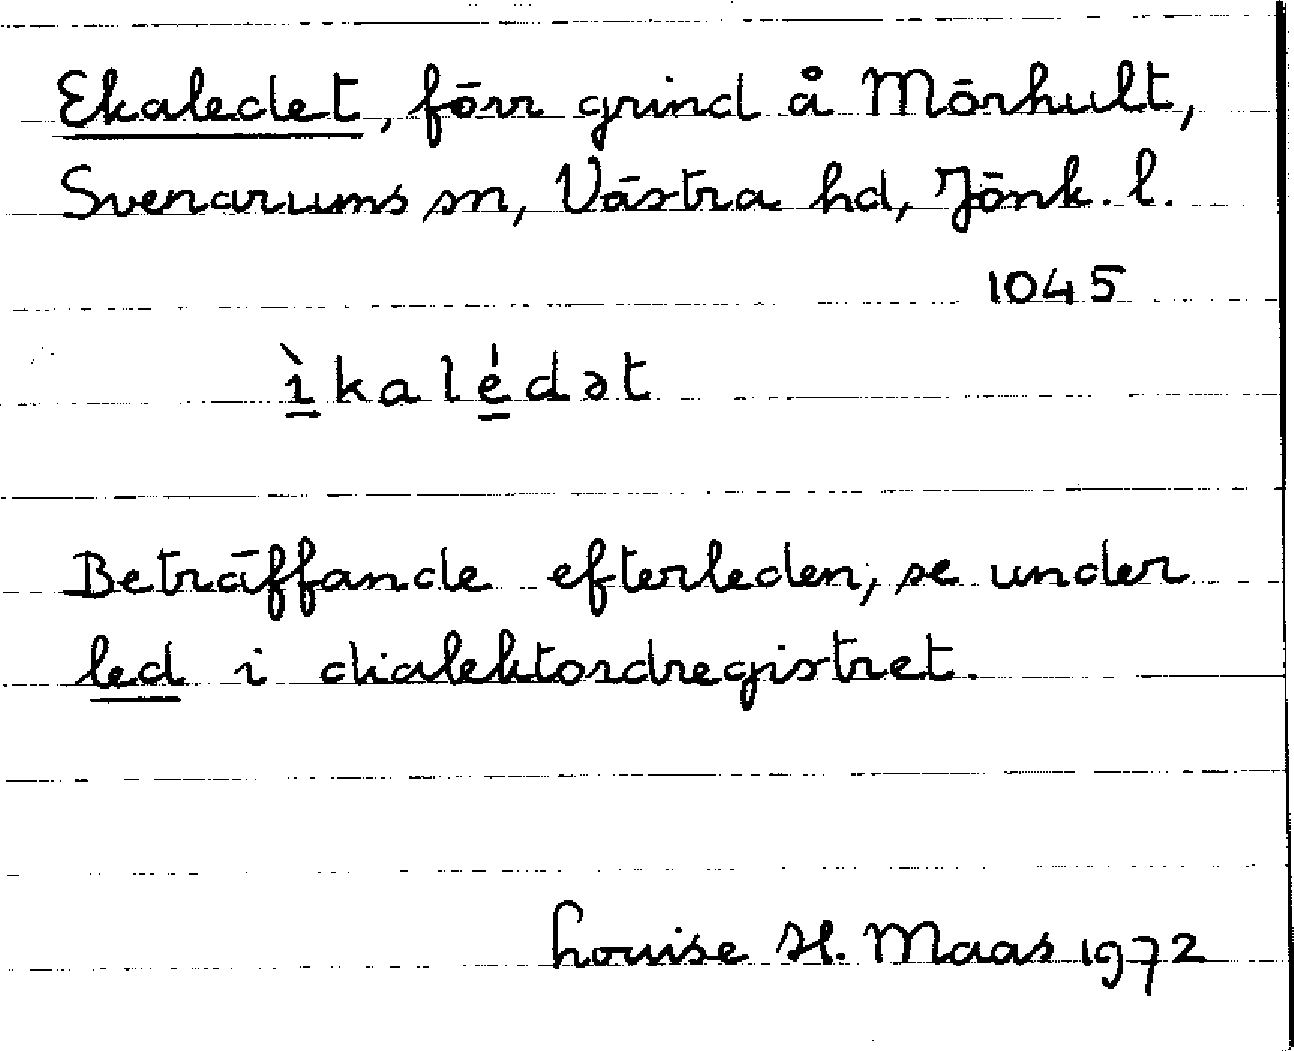 Ekaledet, förr grind å Mörhult,
Svenarums sn, Västra hd, Jönk. l.
1045
ı̀kalédət
Beträffande efterleden, se under
led i dialektordregistret.
Louise H. Maas 1972